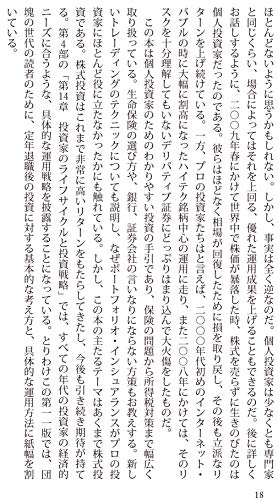 18
ほとんどないように思うかもしれない。しかし、事実は全く逆なのだ。個人投資家は少なくとも専門家
と同じくらい、場合によってはそれを上回る、優れた運用成果を上げることもできるのだ。後に詳しく
お話しするように、二〇〇九年春にかけて世界中で株価が暴落した時、株式を売らずに生きのびたのは
個人投資家だったのである。彼らはほどなく相場が回復したために損を取り戻し、その後も立派なリ
ターンを上げ続けている。一方、プロの投資家たちはと言えば、二〇〇〇年代初めのインターネット・
バブルの時に大幅に割高になったハイテク銘柄中心の運用に走り、また二〇〇八年にかけては、そのリ
スクを十分理解してもいないデリバティブ証券にどっぷりはまり込んで大火傷をしたものだ。
この本は個人投資家のためのわかりやすい投資の手引であり、保険の問題から所得税対策まで幅広く
取り扱っている。生命保険の選び方や、銀行、証券会社の言いなりにならない方策もお教えする。新し
いトレーディングのテクニックについても説明し、なぜポートフォリオ・インシュアランスがプロの投
資家にほとんど役に立たなかったかにも触れている。しかし、この本の主たるテーマはあくまで株式投
資である。株式投資はこれまで非常に高いリターンをもたらしてきたし、今後も引き続き期待が持て
る。第4部の「第14章 投資家のライフサイクルと投資戦略」では、すべての年代の投資家の経済的
ニーズに合うような、具体的な運用戦略を披露することになっている。とりわけこの第一一版では、団
塊の世代の読者のために、定年退職後の投資に対する基本的な考え方と、具体的な運用方法に紙幅を割
いている。